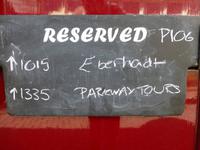 RESERVED P106
↑1015 Eberhadt
↑1335 PARKWAY TOURS